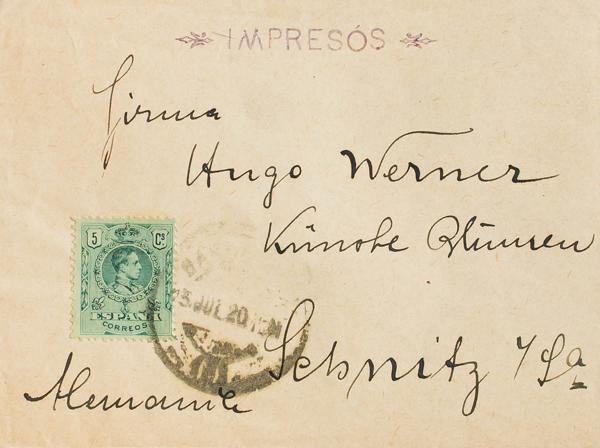 IMPRESÓS
Firma
Hugo Werner
Künstl. Blumen
5 Cs
ESPAÑA
CORREOS
JUL 20
Sebnitz i/Sa
Alemania